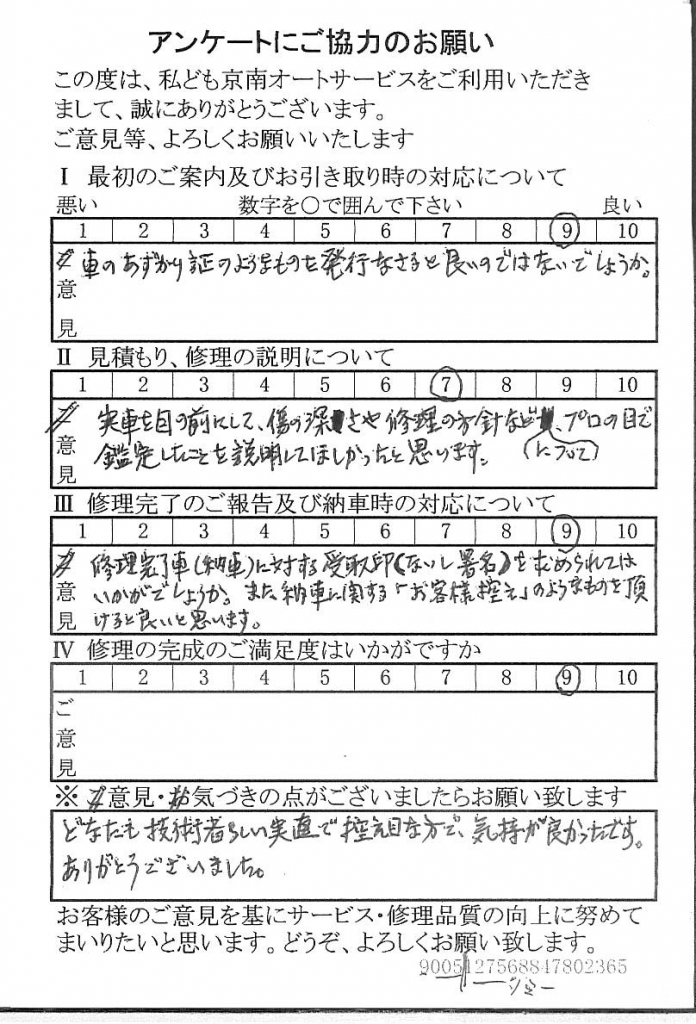 アンケートにご協力のお願い
この度は、私ども京南オートサービスをご利用いただき
まして、誠にありがとうございます。
ご意見等、よろしくお願いいたします
Ⅰ 最初のご案内及びお引き取り時の対応について
悪い 数字を〇で囲んで下さい 良い
1 2 3 4 5 6 7 8 9 10
ご意見
車のあずかり証のようなものを発行なさると良いのではないでしょうか。
Ⅱ 見積もり、修理の説明について
1 2 3 4 5 6 7 8 9 10
ご意見
実車を目の前にして、傷の深さや修理の方針など(について)、プロの目で
鑑定したことを説明してほしかったと思います。
Ⅲ 修理完了のご報告及び納車時の対応について
1 2 3 4 5 6 7 8 9 10
ご意見
修理完了車(納車)に対する受取印(ないし署名)を求められては
いかがでしょうか。また納車に関する「お客様控え」のようなものを頂
けると良いと思います。
Ⅳ 修理の完成のご満足度はいかがですか
1 2 3 4 5 6 7 8 9 10
ご意見
※ ご意見・お気づきの点がございましたらお願い致します
どなたも技術者らしい実直で控え目な方で、気持が良かったです。
ありがとうございました。
お客様のご意見を基にサービス・修理品質の向上に努めて
まいりたいと思います。どうぞ、よろしくお願い致します。
9005127568847802365